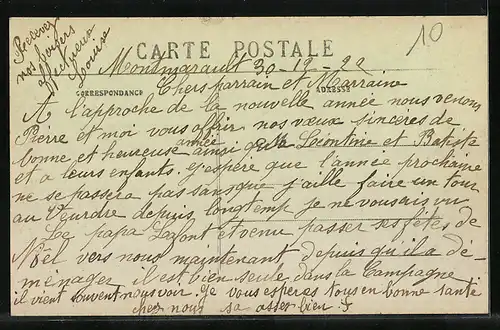 Recevez
nos baisers
affectueux
Louise
10
CARTE POSTALE
Montmarault 30-12-22
Chers parrain et Marraine
CORRESPONDANCE
ADRESSE
A l'approche de la nouvelle année nous venons
Pierre et moi vous offrir nos vœux sinceres de
bonne et heureuse année ainsi qu'a Leontine et Batista
et a leurs enfants. J'espère que l'année prochaine
ne se passera pas sans que j'aille faire un tour
au Veurdre depuis longtemp je ne vous ais vu
Le papa Lafont et venu passer ses fêtes de
Noël vers nous maintenant depuis qu'il a dé-
ménager il est bien seule dans la Campagne
il vient souvent nous voir. Je vous esperes tous en bonne santé
chez nous sa asser bien